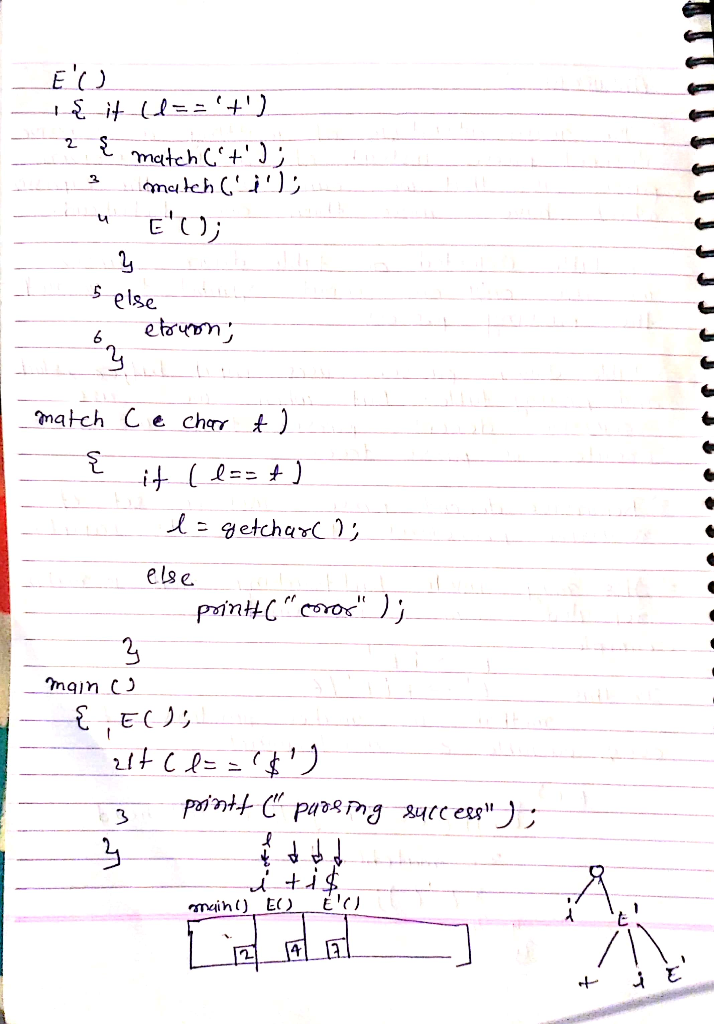 E'()
1 { if (l=='+')
2 { match('+');
3 match('i');
4 E'();
}
5 else
6 etrurn;
}
match (e char t)
{ if (l==t)
l = getchar();
else
printf("error");
}
main ()
{ 1 E();
2 if (l=='$')
3 printf ("parsing success");
}
l
i + i $
main() E() E'()
2 4 7
i E'
+ i E'